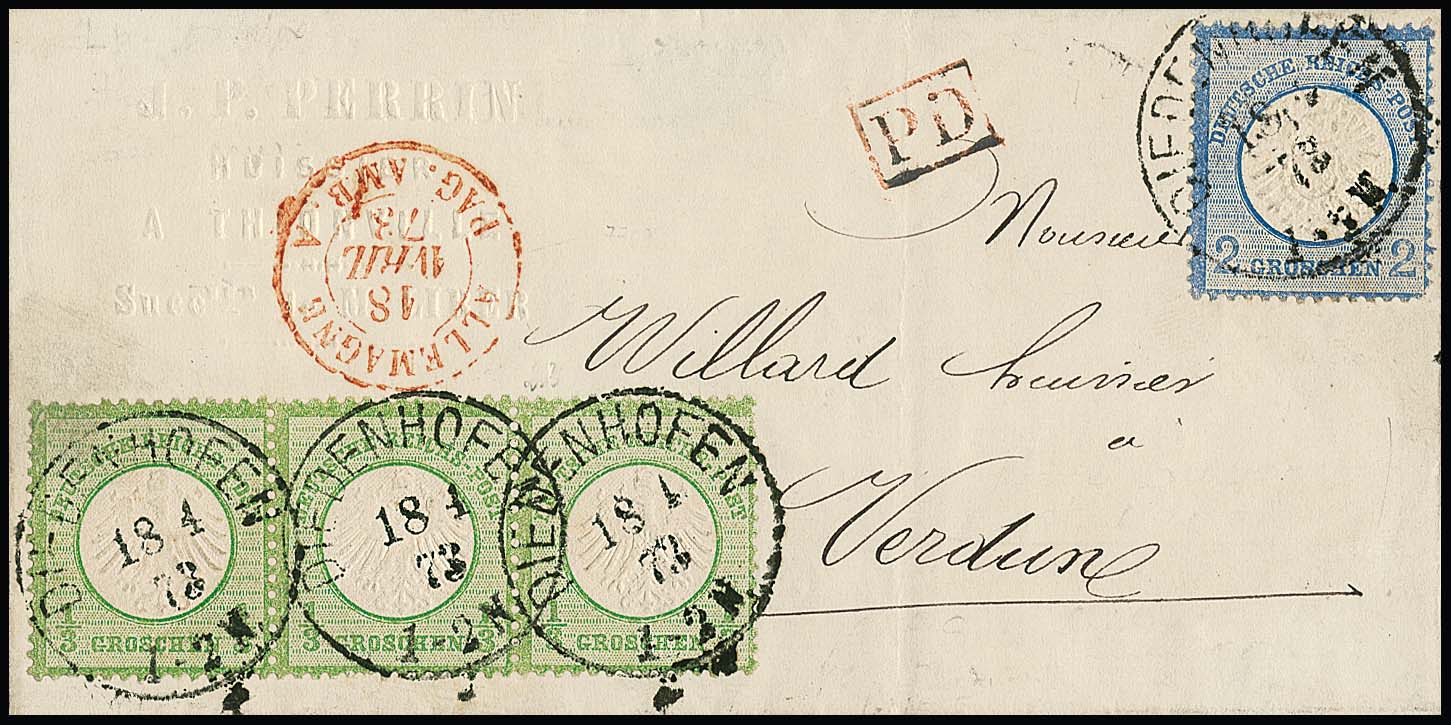 J. P. PERRIN
HUISSIER
A THIONVILLE
Succr de
PD
ALLEMAGNE
PAG. AMB. A
18
AVRIL
73
DEUTSCHE REICHS-POST
2 GROSCHEN 2
DIEDENHOFEN
Monsieur
Willard huissier
à
Verdun
DEUTSCHE REICHS-POST
1/3 GROSCHEN 1/3
DIEDENHOFEN
18 4
73
1-2 N.
DEUTSCHE REICHS-POST
1/3 GROSCHEN 1/3
DIEDENHOFEN
18 4
73
1-2 N.
DEUTSCHE REICHS-POST
1/3 GROSCHEN 1/3
DIEDENHOFEN
18 4
73
1-2 N.